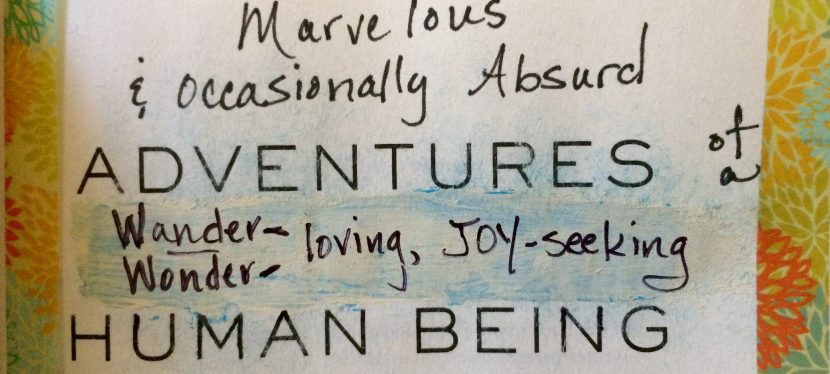 Marvelous
& occasionally Absurd
ADVENTURES of a
Wander-
Wonder- loving, JOY-seeking
HUMAN BEING